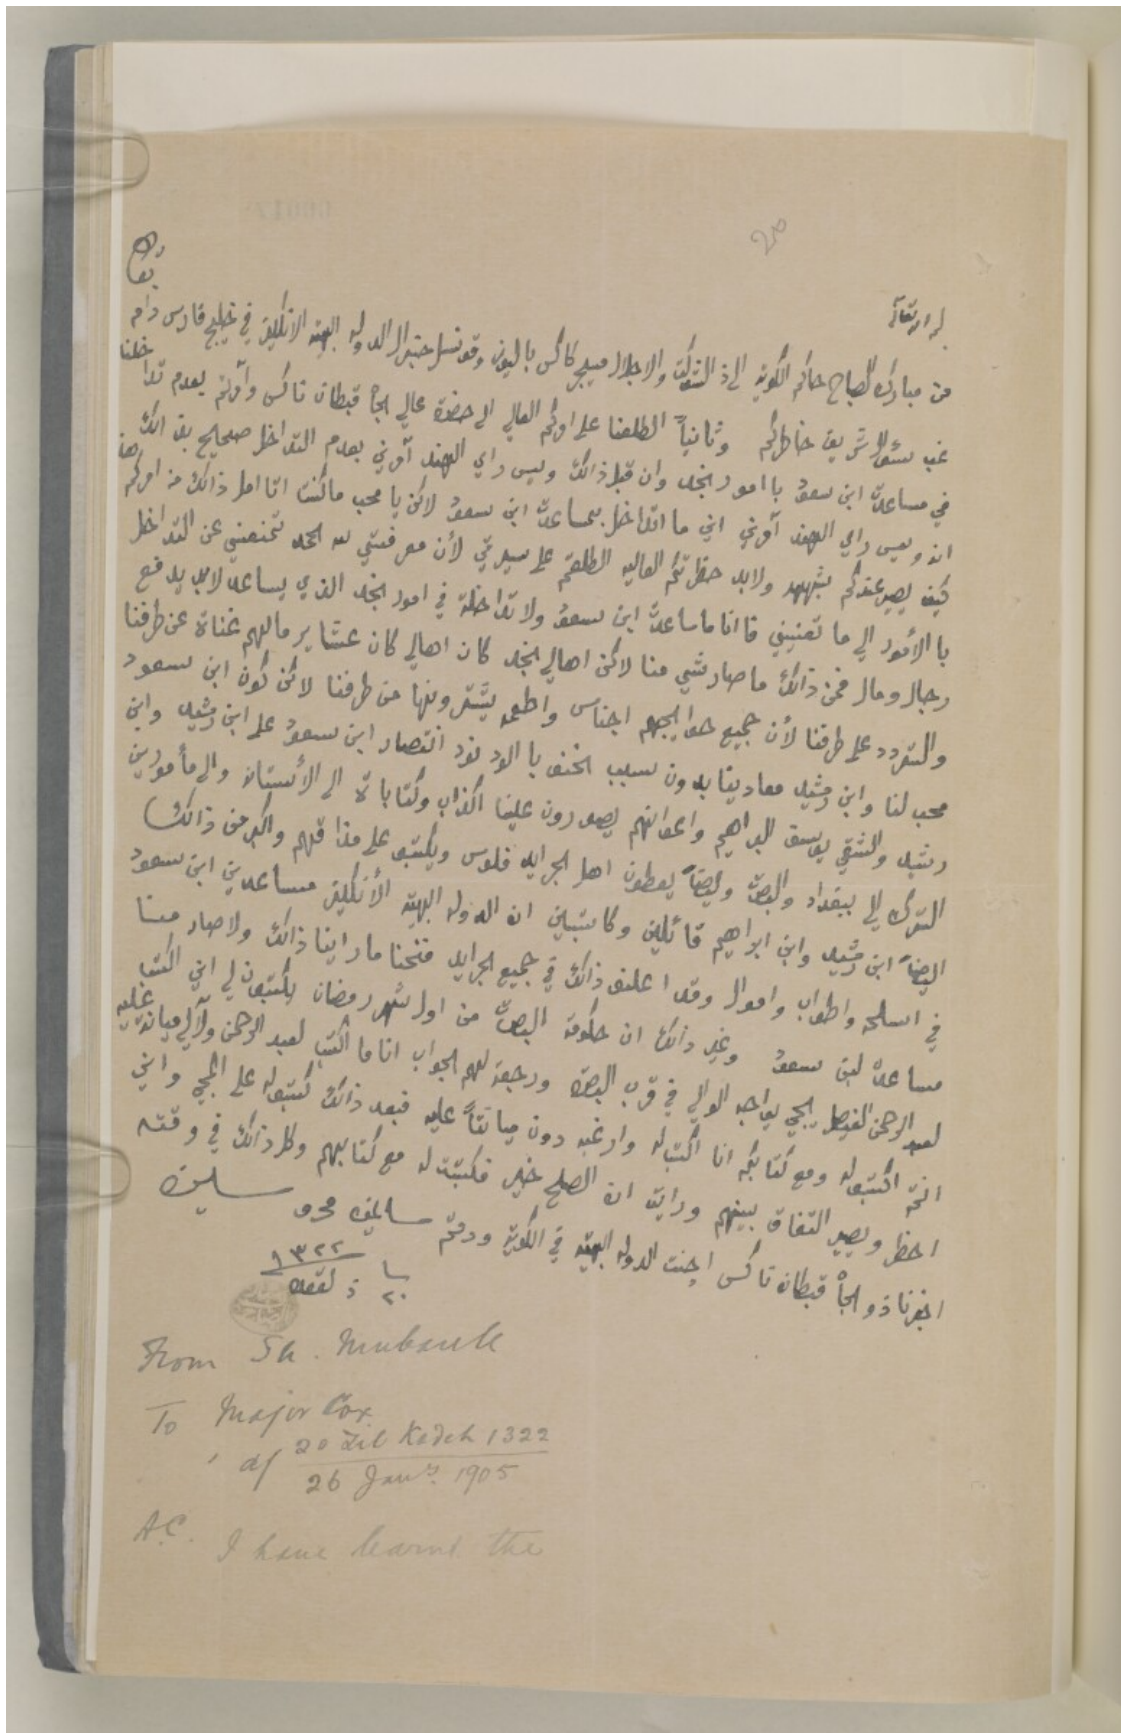 20
لله تعالى
من مبارك الصباح حاكم الكويت الى ذ الشوكت والاجلال ميجر كاكس باليوز وقونسل جنرال الدوله البهيه الانكليز في خليج فارس دام بقاه
غب سؤال شريف خاطركم وثانياً اطلعنا على امركم العالي الى حضرة عالي الجاه قبطان ناكس وآمرتم بعدم تداخلنا
في مساعدت ابن سعود با امور انجد وان قبل ذالك ويس راي الهند آمرني بعدم التداخل صحيح بقى
ان ويس راي الهند آمرني اني ما اتداخل بمساعدت ابن سعود لاكن يا محب ماكنت اتا امل ذالك من امركم
كيف يصير عندكم ولابد حظرتكم العاليه اطلعتم على سيرتي لأن معرفتي لله الحمد تمنعني عن التداخل
با الأمور الي ما تعنيني فا انا ماساعدت ابن سعود ولا تداخلة في امور انجد الذي يساعد لابد يدفع
رجال ومال فمن ذالك ما صار شي منا لاكن اهالي انجد كان اهالي كان عشاير مالهم غناة عن طرفنا
والتردد على طرفنا لأن جميع حوايجهم اجناس واطعمه يشترونها من طرفنا لاكن كون ابن سعود
محب لنا وابن رشيد معادينا بدون سبب انتصار ابن سعود على ابن رشيد وابن
رشيد والشقي يوسف البراهيم واعوانهم يصورون علينا اكذاب وكتاباة الى الأستانه والى مأمورين
الترك الي ببغداد والبصرة وايضاً يعطون اهل الجرايد فلوس ويكتبو على مذاقهم واكبر من ذالك
ايضاً ابن رشيد وابن ابراهيم قائلين وكاتبين ان الدوله البهيه الأنكليز مساعدين ابن سعود
في اسلحه واطواب واموال وقد اعلنو ذالك في جميع الجرايد فنحنا ماراينا ذالك ولا صار منا
مساعدة لبن سعود وغير ذالك ان حكومة البصرة من اول شهر رمضان يكتبون لي اني اكتب
لعبد الرحمن الفيصل يجي يواجه الوالي في قرب البصرة ورجعة لهم الجواب انا ما اكتب لعبد الرحمن ولا لي ميانة عليه
انتم اكتبو له ومع كتابكم انا اكتب له وارغبه دون ميانتاً عليه فبعد ذالك كتبو له على المجي واني
احظر ويصير اتفاق بينهم ورايت ان الصلح خير فكتبت له مع كتابهم وكل ذالك في وقته
اخبرنا ذو الجاه قبطان ناكس اجنت الدوله البهيه في الكويت ودمتم سالمين محروسين
٢٠ ذ لقعده ١٣٢٢
From Sh. Mubarak
To Major Cox
d/ 20 Zil Kadeh 1322
26 Jany. 1905
A.C. I have learnt the